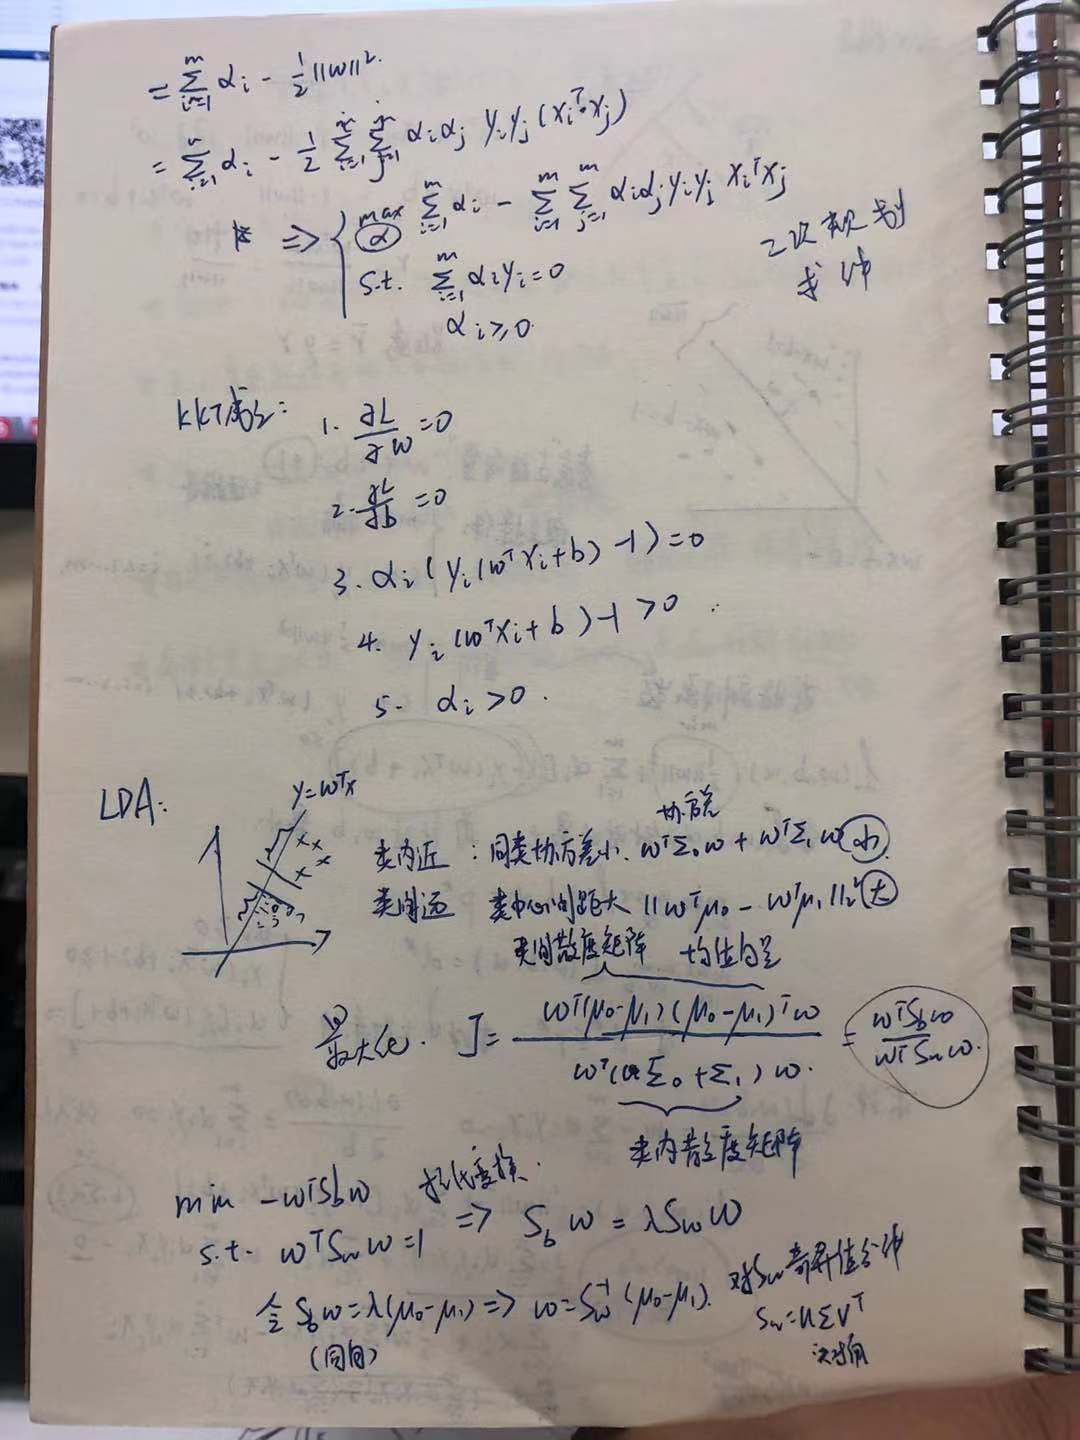 = Σ_{i=1}^{m} αi - 1/2 ||w||².
= Σ_{i=1} αi - 1/2 Σ_{i=1}^{m} Σ_{j=1}^{m} αiαj yiyj (xiᵀxj)
⇒ { max α Σ_{i=1}^{m} αi - Σ_{i=1}^{m} Σ_{j=1}^{m} αiαjyiyj xiᵀxj
二次规划
求解
s.t. Σ_{i=1}^{m} αiyi=0
αi≥0.
KKT条件:
1. ∂L/∂w =0
2. ∂L/∂b =0
3. αi(yi(wᵀxi+b)-1)=0
4. yi(wᵀxi+b)-1>0
5. αi>0.
LDA:
y=wᵀx
协方差
类内近 : 同类协方差小. wᵀΣ₀w + wᵀΣ₁w 小.
类间远 类中心间距大 ||wᵀμ₀ - wᵀμ₁||₂² 大
类间散度矩阵 均值向量
w
最大化. J= wᵀ(μ₀-μ₁)(μ₀-μ₁)ᵀw / wᵀ(Σ₀+Σ₁)w. = wᵀSbw / wᵀSww.
类内散度矩阵
min -wᵀSbw 拉氏变换.
s.t. wᵀSww=1 ⇒ Sbw = λSww
令 Sbw=λ(μ₀-μ₁) ⇒ w=Sw⁻¹(μ₀-μ₁). 对Sw奇异值分解
(同向)
Sw=UΣVᵀ
对角